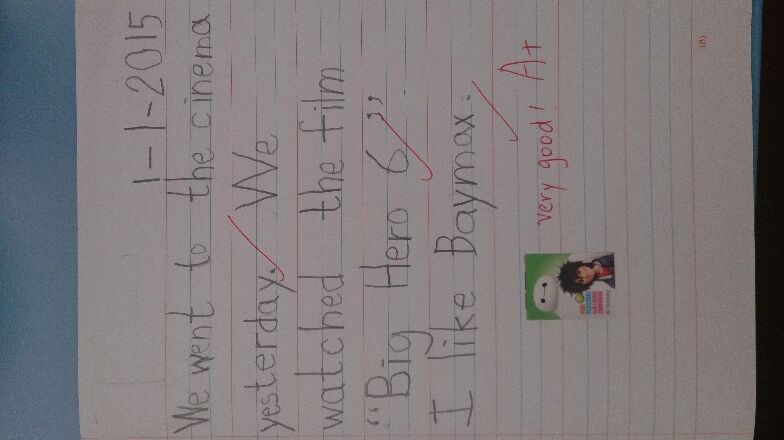 1-1-2015
We went to the cinema
yesterday. We
watched the film
"Big Hero 6".
I like Baymax.
very good! A+
(8)